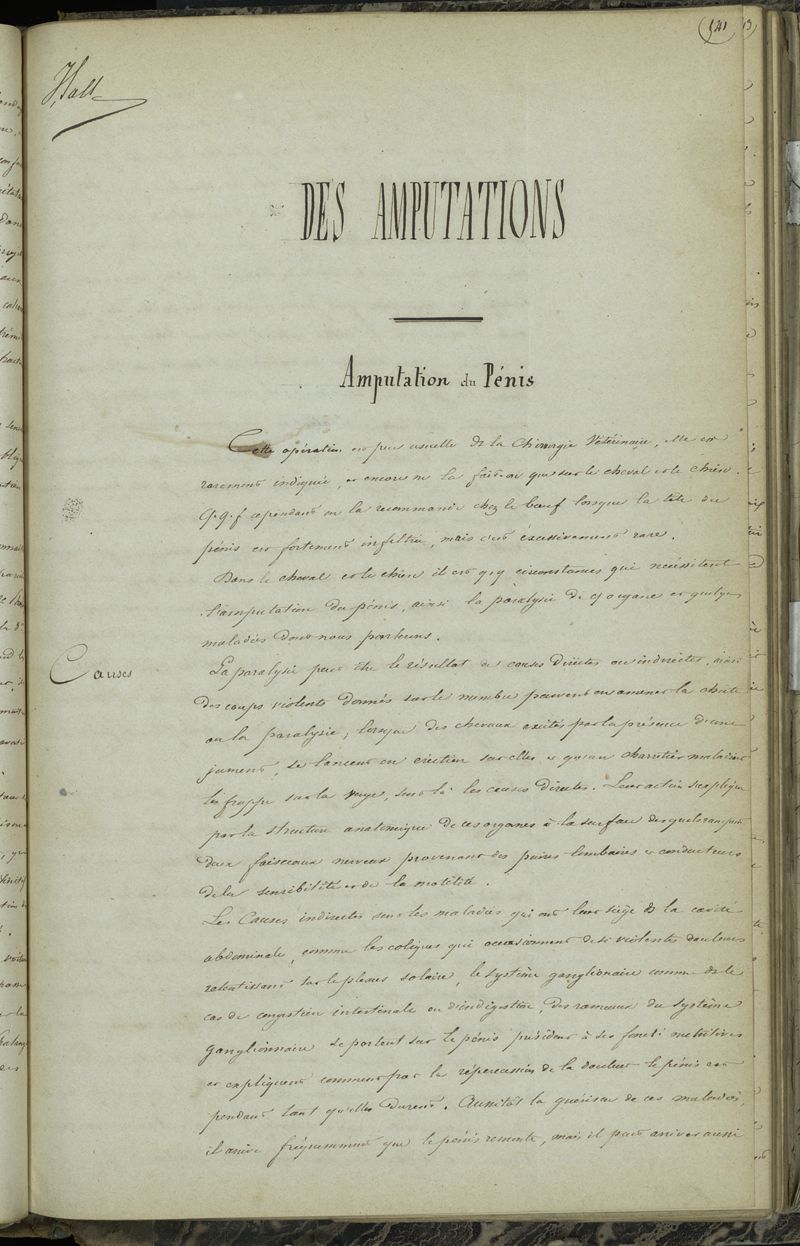 541
Hall
DES AMPUTATIONS
Amputation du Pénis
Cette opération est peu usuelle ds la Chirurgie Vétérinaire, elle est
rarement indiquée, et encore ne la fait-on que sur le cheval et le chien.
q.q.f cependant on la recommande chez le bœuf lorsque la tête du
pénis est fortement infiltrée, mais c'est excessivement rare.
Dans le cheval et le chien il est q.q circonstances qui nécessitent
l'amputation du pénis, ainsi la paralysie de cet organe et quelques
maladies dont nous parlerons.
Causes
La paralysie peut être le résultat de causes directes ou indirectes, ainsi
des coups violents donnés sur le membre peuvent en amener la chute
ou la paralysie, lorsque des chevaux excités par la présence d'une
jument, se lancent en érection sur elles et qu'un charretier maladroit
les frappe sur la verge, sont là les causes directes. Leur action s'explique
par la structure anatomique de ces organes à la surface desquels rampent
deux faisceaux nerveux provenant des paires lombaires et conducteurs
de la sensibilité et de la motilité.
Les Causes indirectes sont les maladies qui ont leur siège ds la cavité
abdominale, comme les coliques qui occasionnent de si violentes douleurs
retentissant sur le plexus solaire, le système ganglionaire comme ds le
cas de congestion intestinale ou d'indigestion, des rameaux du système
ganglionnaire se portent sur le pénis président à ses fonct. nutritives
et expliquent comment par la répercussion de la douleur le pénis est
pendant tant qu'elles durent. Aussitôt la guérison de ces maladies,
il arrive fréquemment que le pénis remonte, mais il peut arriver aussi